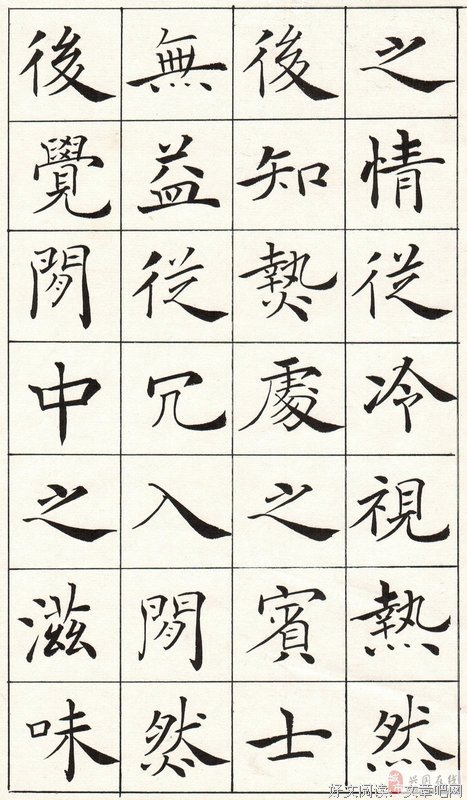 之情從冷視熱然
後知熱處之賓士
無益從冗入閒然
後覺閒中之滋味
兴国在线
好文阅读,文章吧网